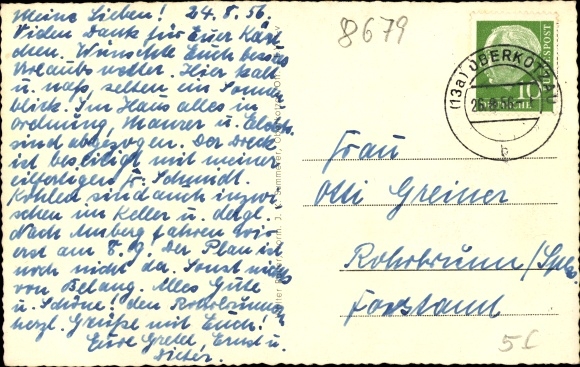 Meine Lieben! 24.8.56.
Vielen Dank für Euer Käst
chen. Wünschte Euch besseres
Urlaubswetter. Hier kalt
u. naß, selten ein Sonnen
blick. Im Haus alles in
ordnung, Maurer u. Elektr.
sind abgezogen. Der Dreck
ist beseitigt mit meiner
eilfertigen Fr. Schmidt.
Kohlen sind auch inzwi
schen im Keller u. dergl.
Nach Amberg fahren wir
erst am 7. 9. Der Plan ist
noch nicht da. Sonst nichts
von Belang. Alles Gute
u. Schöne! den Rohrbrunnern
herzl. Grüße mit Euch!
Eure Gretel, Ernst u.
Dieter.
8679
(13a) OBERKOTZAU
26.8.56
b
10
DEUTSCHE BUNDESPOST
Frau
Otti Greiner
Rohrbrunn/Spess.
Forstamt
5C